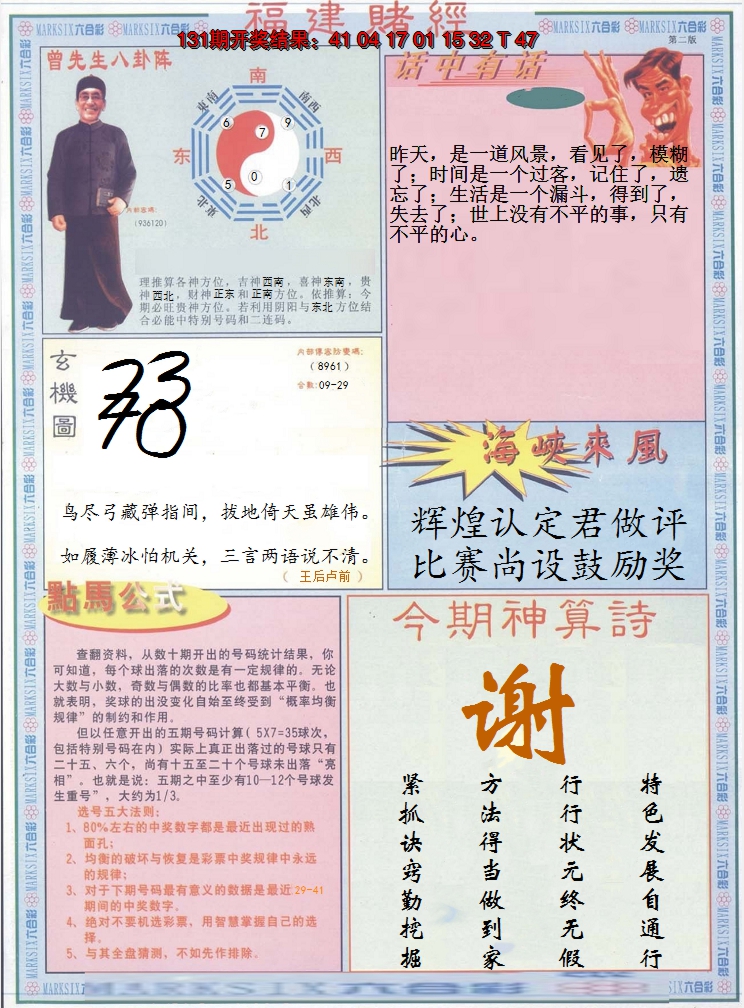 福建賭經
131期开奖结果：41 04 17 01 15 32 T 47
第二版
MARKSIX六合彩
曾先生八卦阵
南
东南
西南
6
9
7
东
西
5
0
1
东北
西北
北
内部密碼：
（936120）
理推算各神方位，吉神西南，喜神东南，贵
神西北，财神正东和正南方位。依推算：今
期必旺贵神方位。若利用阴阳与东北方位结
合必能中特别号码和二连码。
话中有话
昨天，是一道风景，看见了，模糊
了；时间是一个过客，记住了，遗
忘了；生活是一个漏斗，得到了，
失去了；世上没有不平的事，只有
不平的心。
玄機圖
内部傳密防雙碼：
（8961）
合數：09-29
鸟尽弓藏弹指间，拔地倚天虽雄伟。
如履薄冰怕机关，三言两语说不清。
（ 王后卢前 ）
海峽來風
辉煌认定君做评
比赛尚设鼓励奖
點馬公式
查翻资料，从数十期开出的号码统计结果，你
可知道，每个球出落的次数是有一定规律的。无论
大数与小数，奇数与偶数的比率也都基本平衡。也
就表明，奖球的出没变化自始至终受到“概率均衡
规律”的制约和作用。
但以任意开出的五期号码计算（5X7=35球次，
包括特别号码在内）实际上真正出落过的号球只有
二十五、六个，尚有十五至二十个号球未出落“亮
相”。也就是说：五期之中至少有10—12个号球发
生重号”，大约为1/3。
选号五大法则：
1、80%左右的中奖数字都是最近出现过的熟
面孔；
2、均衡的破坏与恢复是彩票中奖规律中永远
的规律；
3、对于下期号码最有意义的数据是最近29-41
期间的中奖数字。
4、绝对不要机选彩票，用智慧掌握自己的选
择。
5、与其全盘猜测，不如先作排除。
今期神算詩
谢
特色发展自通行
行行状元终无假
方法得当做到家
紧抓诀窍勤挖掘